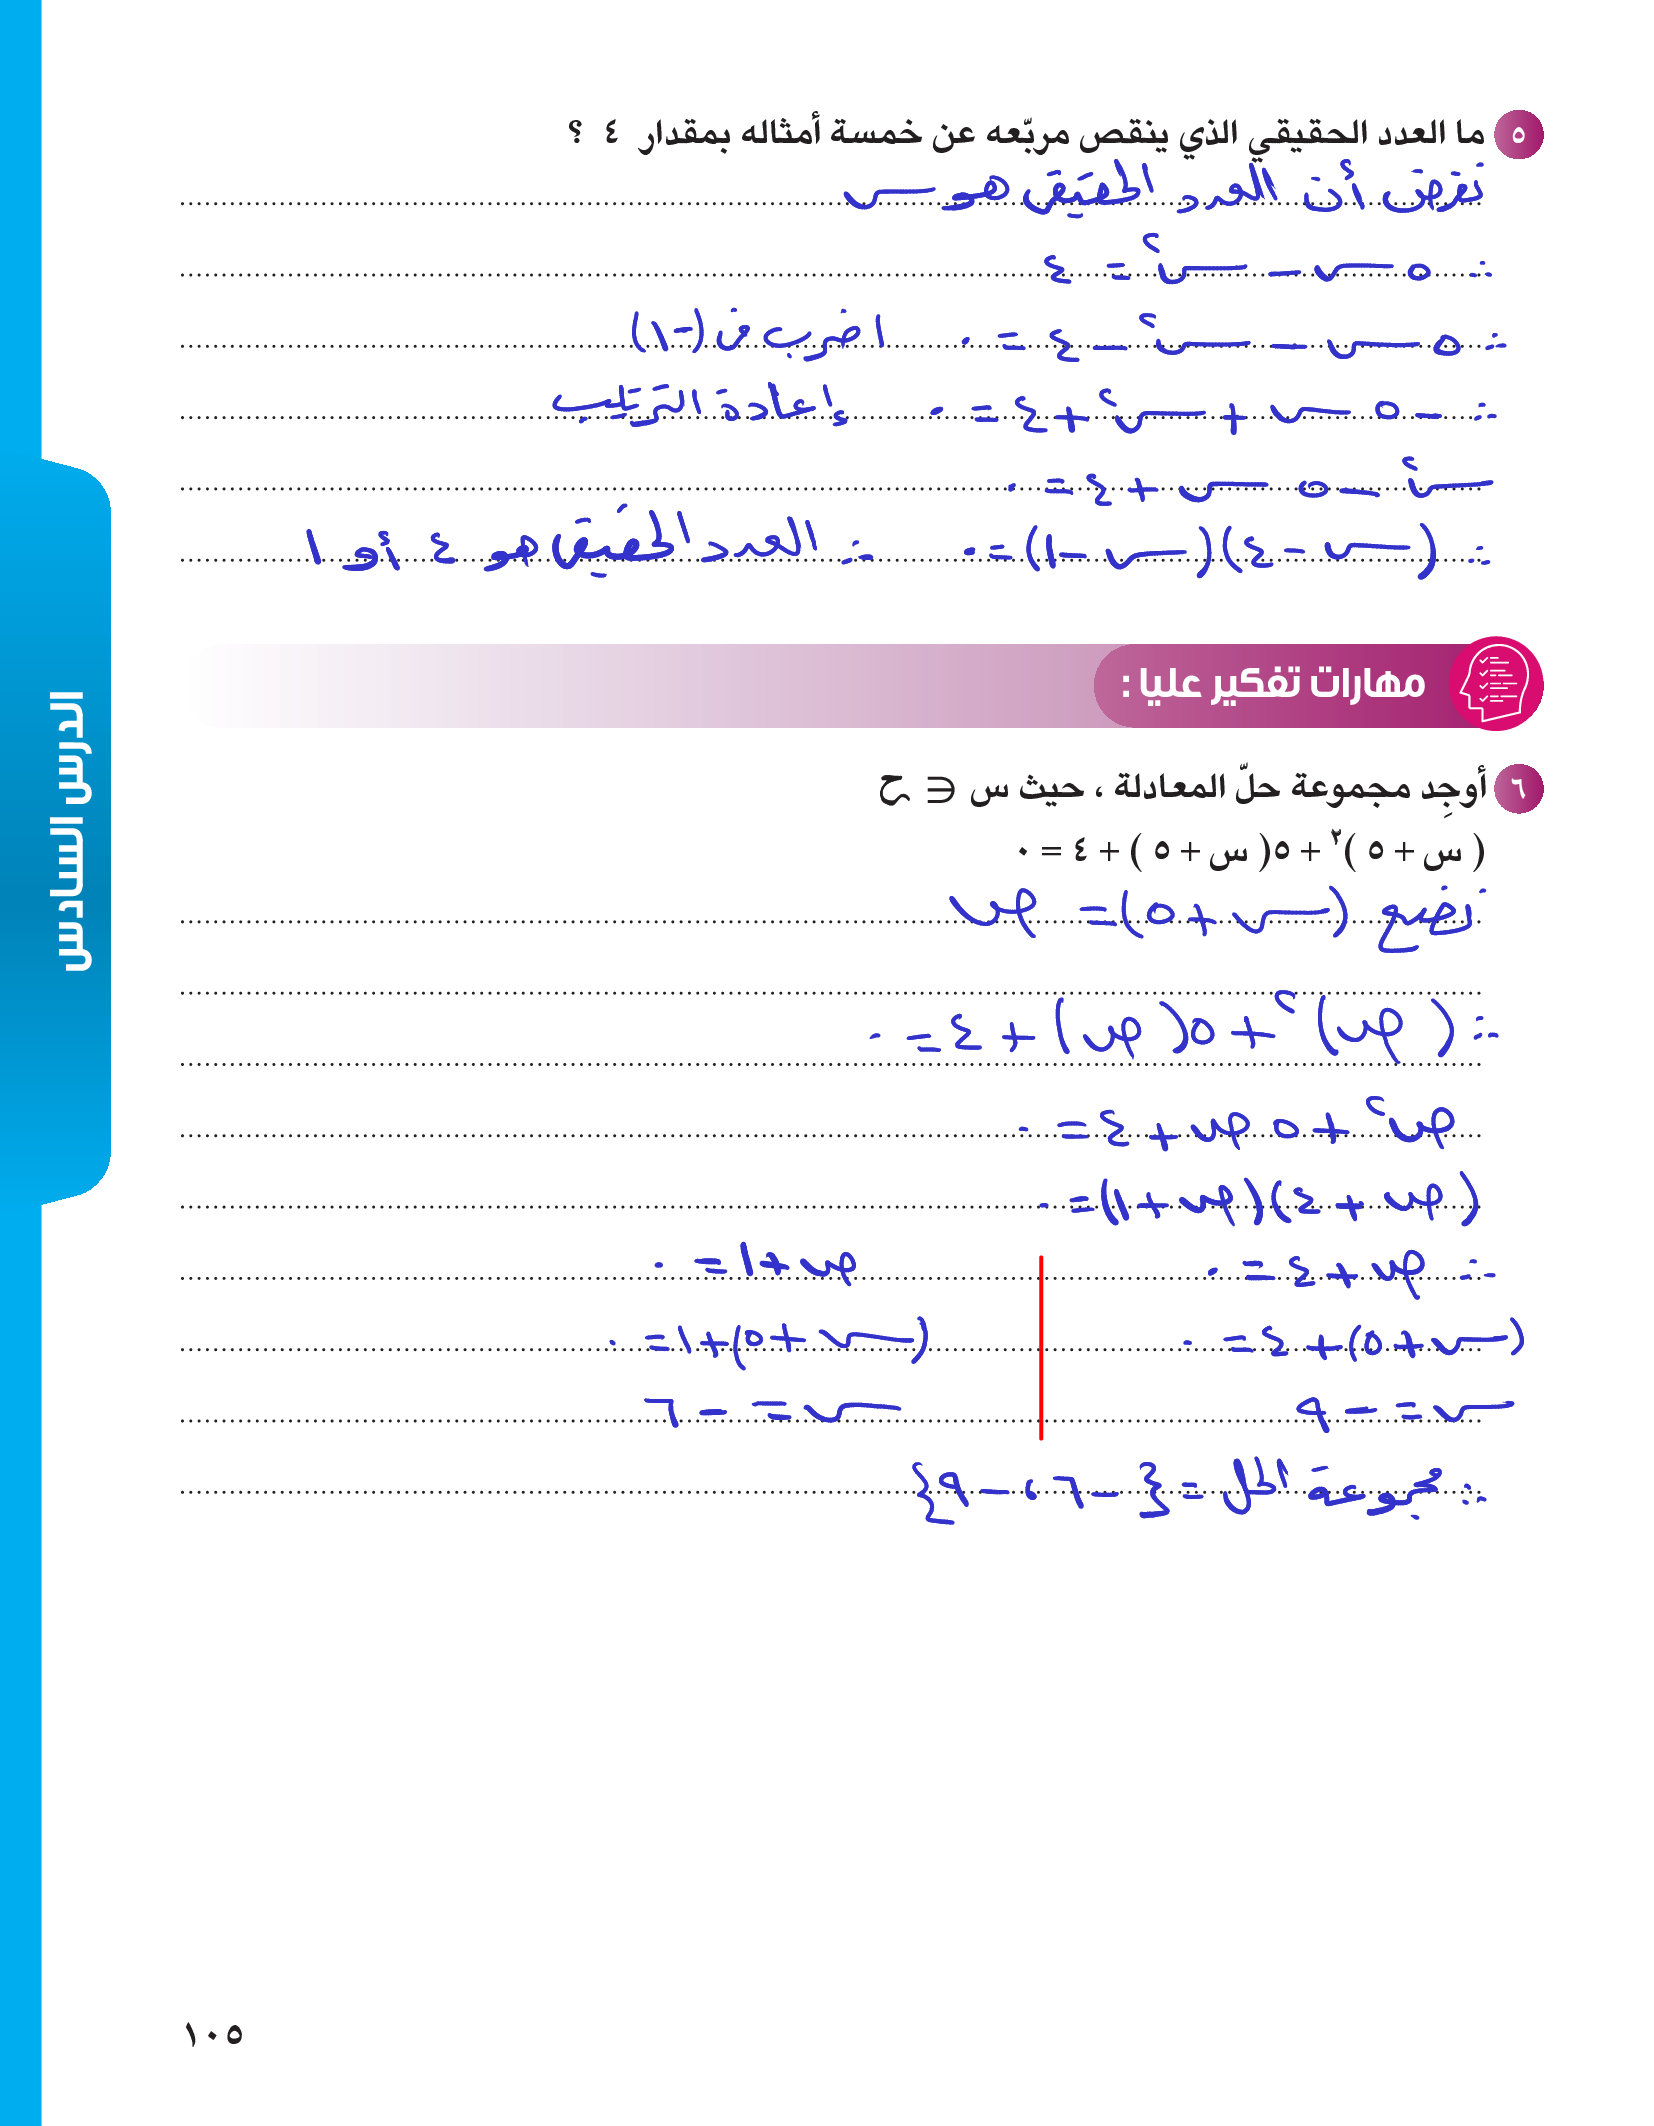 ٥ ما العدد الحقيقي الذي ينقص مربّعه عن خمسة أمثاله بمقدار ٤ ؟
نفرض أن العدد الحقيقي هو س
∴ ٥س − س٢ = ٤
∴ ٥س − س٢ − ٤ = ٠ اضرب في (−١)
∴ −٥س + س٢ + ٤ = ٠ إعادة الترتيب
س٢ − ٥س + ٤ = ٠
∴ (س − ٤)(س − ١) = ٠ ∴ العدد الحقيقي هو ٤ أو ١
مهارات تفكير عليا :
٦ أوجِد مجموعة حلّ المعادلة ، حيث س ∈ ح
( س + ٥ )٢ + ٥( س + ٥ ) + ٤ = ٠
نضع (س + ٥) = ص
∴ (ص)٢ + ٥(ص) + ٤ = ٠
ص٢ + ٥ص + ٤ = ٠
(ص + ٤)(ص + ١) = ٠
∴ ص + ٤ = ٠ ص + ١ = ٠
(س + ٥) + ٤ = ٠ (س + ٥) + ١ = ٠
س = −٩ س = −٦
∴ مجموعة الحل = {−٦ ، −٩}
الدرس السادس
١٠٥